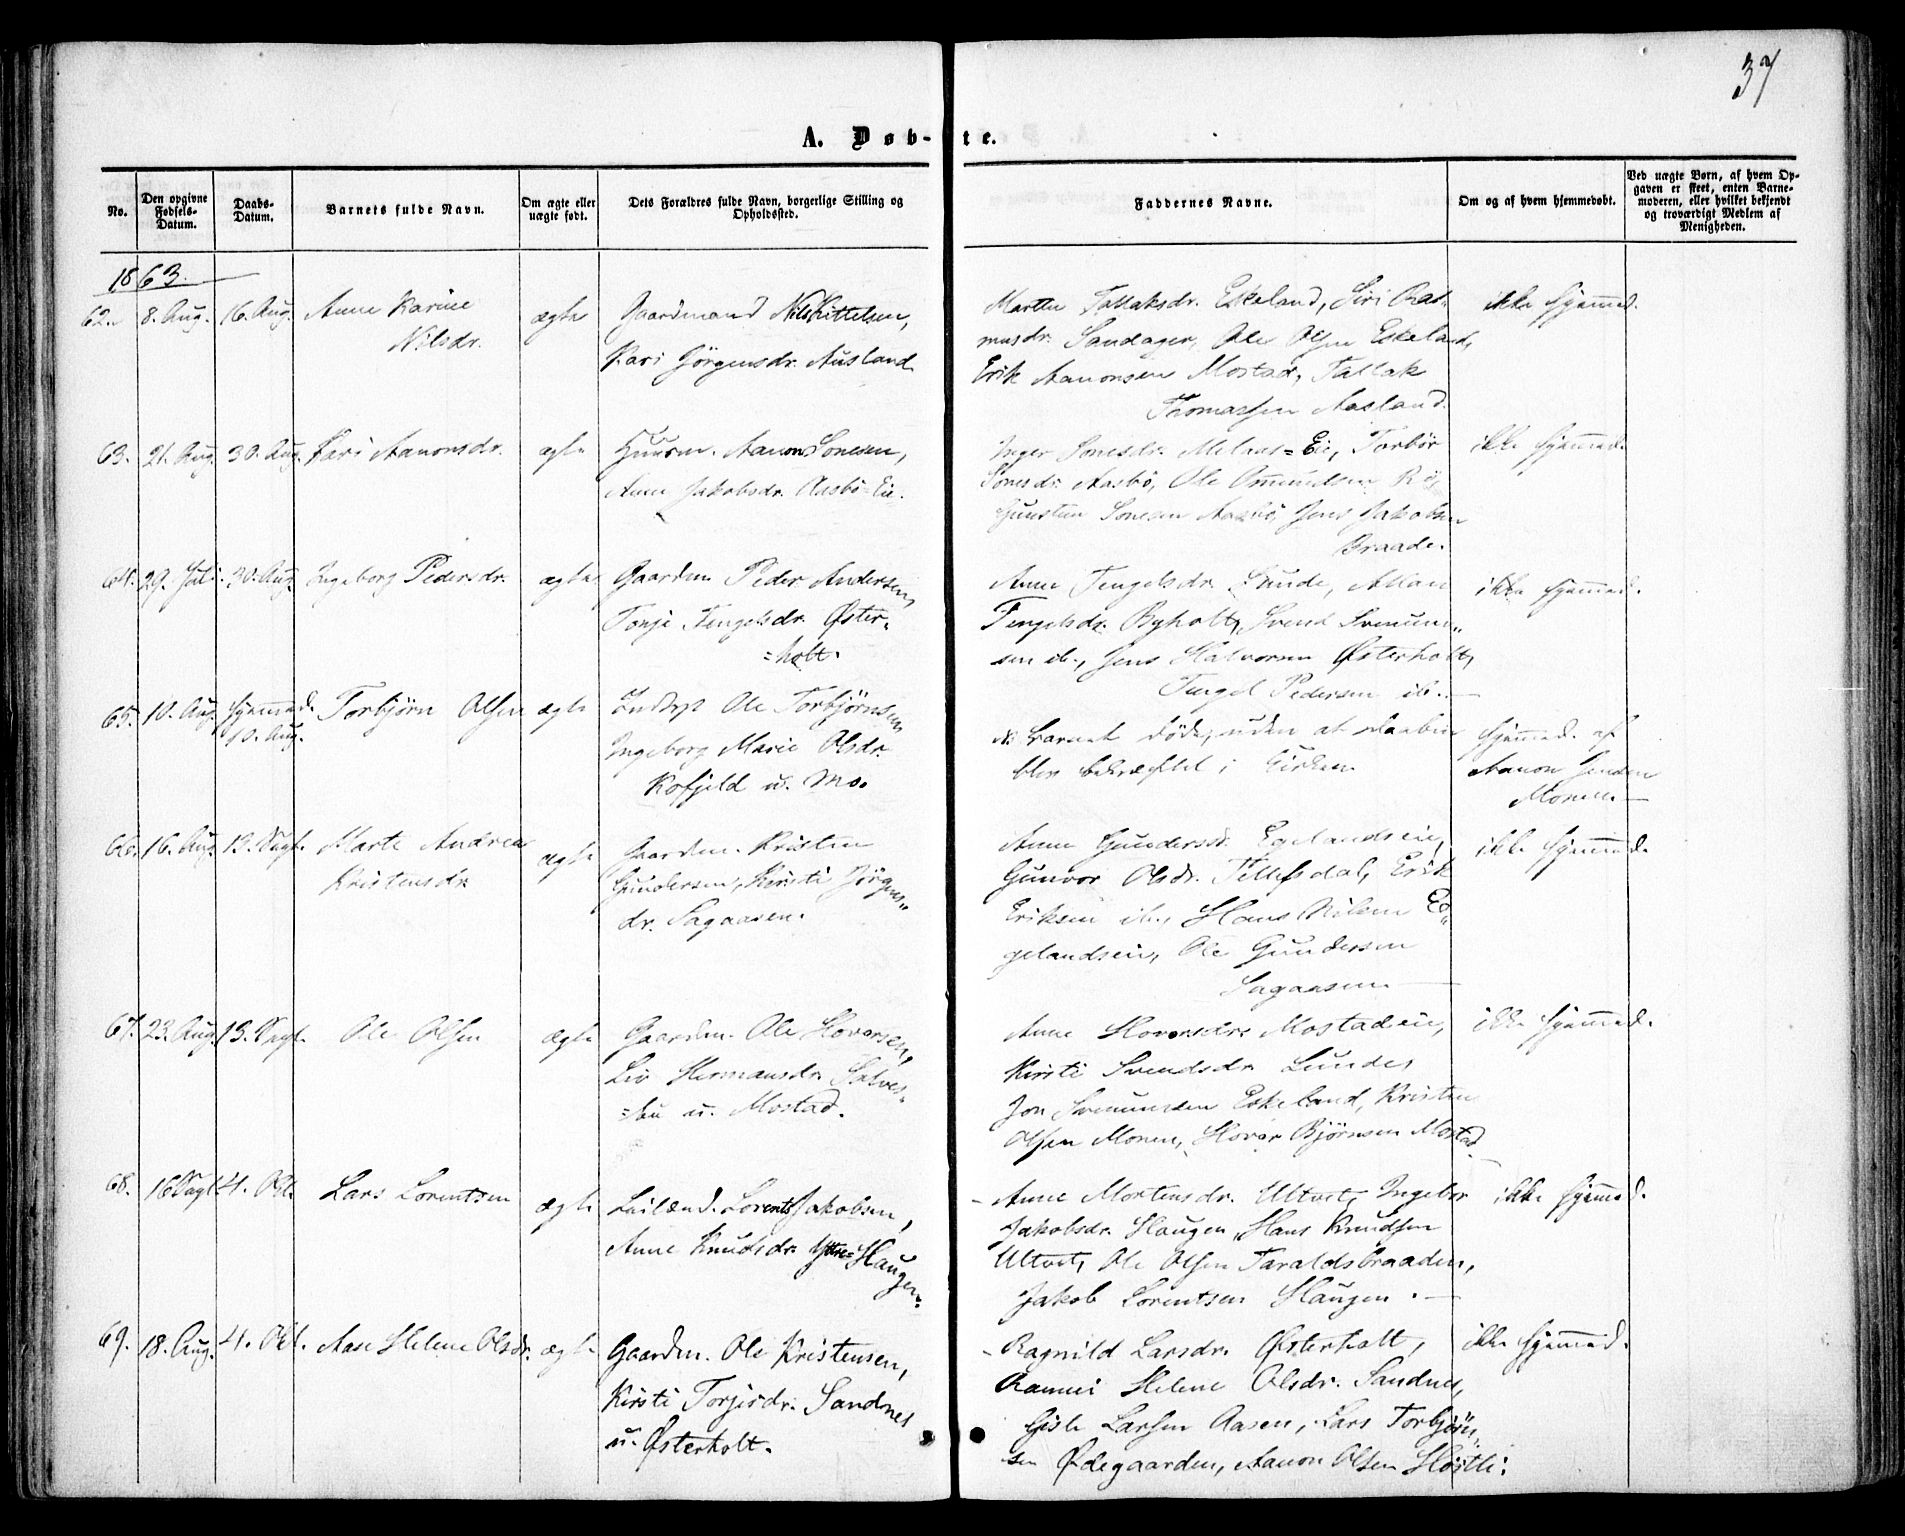 37
A. Døb-te.
No.
Den opgivne Fødsels-Datum.
Daabs-Datum.
Barnets fulde Navn.
Om ægte eller uægte født.
Dets Forældres fulde Navn, borgerlige Stilling og Opholdssted.
Faddernes Navne.
Om og af hvem hjemmedøbt.
Ved uægte Børn, af hvem Opgaven er skeet, enten Barnemoderen, eller hvilket bekjendt og troværdigt Medlem af Menigheden.
1863.
62. 8. Aug. 16. Aug. Anne Karine
Nilsdr.
ægte
Gaardmand Nils Kittelsen,
Kari Jörgensdr. Ausland
Tallaksdr. Eskeland, Siri Ras-
musdr. Sandager, Ole Olsen Eskeland,
Erik Aanonsen Mostad, Tallak
Thomassen Aasland.
ikke hjemmed.
63. 21. Aug. 30. Aug. Kari Aanonsdr.
ægte
Huusm. Aanon Sonesen,
Anne Jakobsdr. Aasbö-Eie.
Inger Sonesdr. Melaas=Eie, Torbör
Sonesdr. Aasbö, Ole Omundsen
Sonesen Aasbö, Jens Jakobsen
Braade.
ikke hjemmed.
64. 29. Juli 30. Aug. Ingeborg Pedersdr.
ægte
Gaardm. Peder Andersen,
Tonje Tengelsdr. Øster-
=holt.
Anne Tengelsdr. Lunde,
Tengelsdr. Byholt, Svend
sen ib., Jens Halvorsen Østerholt,
Tengel Pedersen ib.
ikke hjemmed.
65. 10. Aug. hjemmed.
10. Aug.
Torbjørn Olsen
ægte
Inderst Ole Torbjørnsen
Ingeborg Marie Olsdr.
Kofjeld u. Mo.
Barnet døde, uden at Daaben
blev bekræftet i Kirken
hjemmed. af
Aanon Jensen
Monen.
66. 16. Aug. 13. Sept. Marte Andrea
Kristensdr.
ægte
Gaardm. Kristen
Gundersen, Kirsti Jörgens-
dr. Sagaasen.
Anne Gundersdr. Egelandseie,
Gunvor Olsdr. Tellefsdal, Erik
Eriksen ib., Hans Nilsen E-
gelandseie, Ole Gundersen
Sagaasen.
ikke hjemmed.
67. 23. Aug. 13. Sept. Ole Olsen
ægte
Gaardm. Ole Hovorsen,
Liv Hermansdr. Salves-
u. Mostad.
Anne Hovorsdr. Mostadeie,
Kirsti Svendsdr. Lunde,
Jon Eskeland, Kristen
Olsen Monen, Hovor Bjørnsen Mostad
ikke hjemmed.
68. 16 Sept. 4. Okt. Lars Lorentsen
ægte
Leilænd. Lorents Jakobsen,
Anne Knudsdr. Haugen.
Anne Mortensdr. Ultvet, Ingebor
Jakobsdr. Haugen, Hans Knudsen
Ultvet, Ole Olsen Taraldsbraaden,
Jakob Lorentsen Haugen.
ikke hjemmed.
69. 18. Aug. 4. Okt. Aase Helene Olsdr.
ægte
Gaardm. Ole Kristensen,
Kirsti Torjusdr. Sandnes
u. Østerholt.
Ragnild Larsdr. Østerholt,
Helene Olsdr. Sandnes,
Gisle Larsen Aasen, Lars Torbjörn-
sen Ødegaarden, Aanon Olsen
ikke hjemmed.